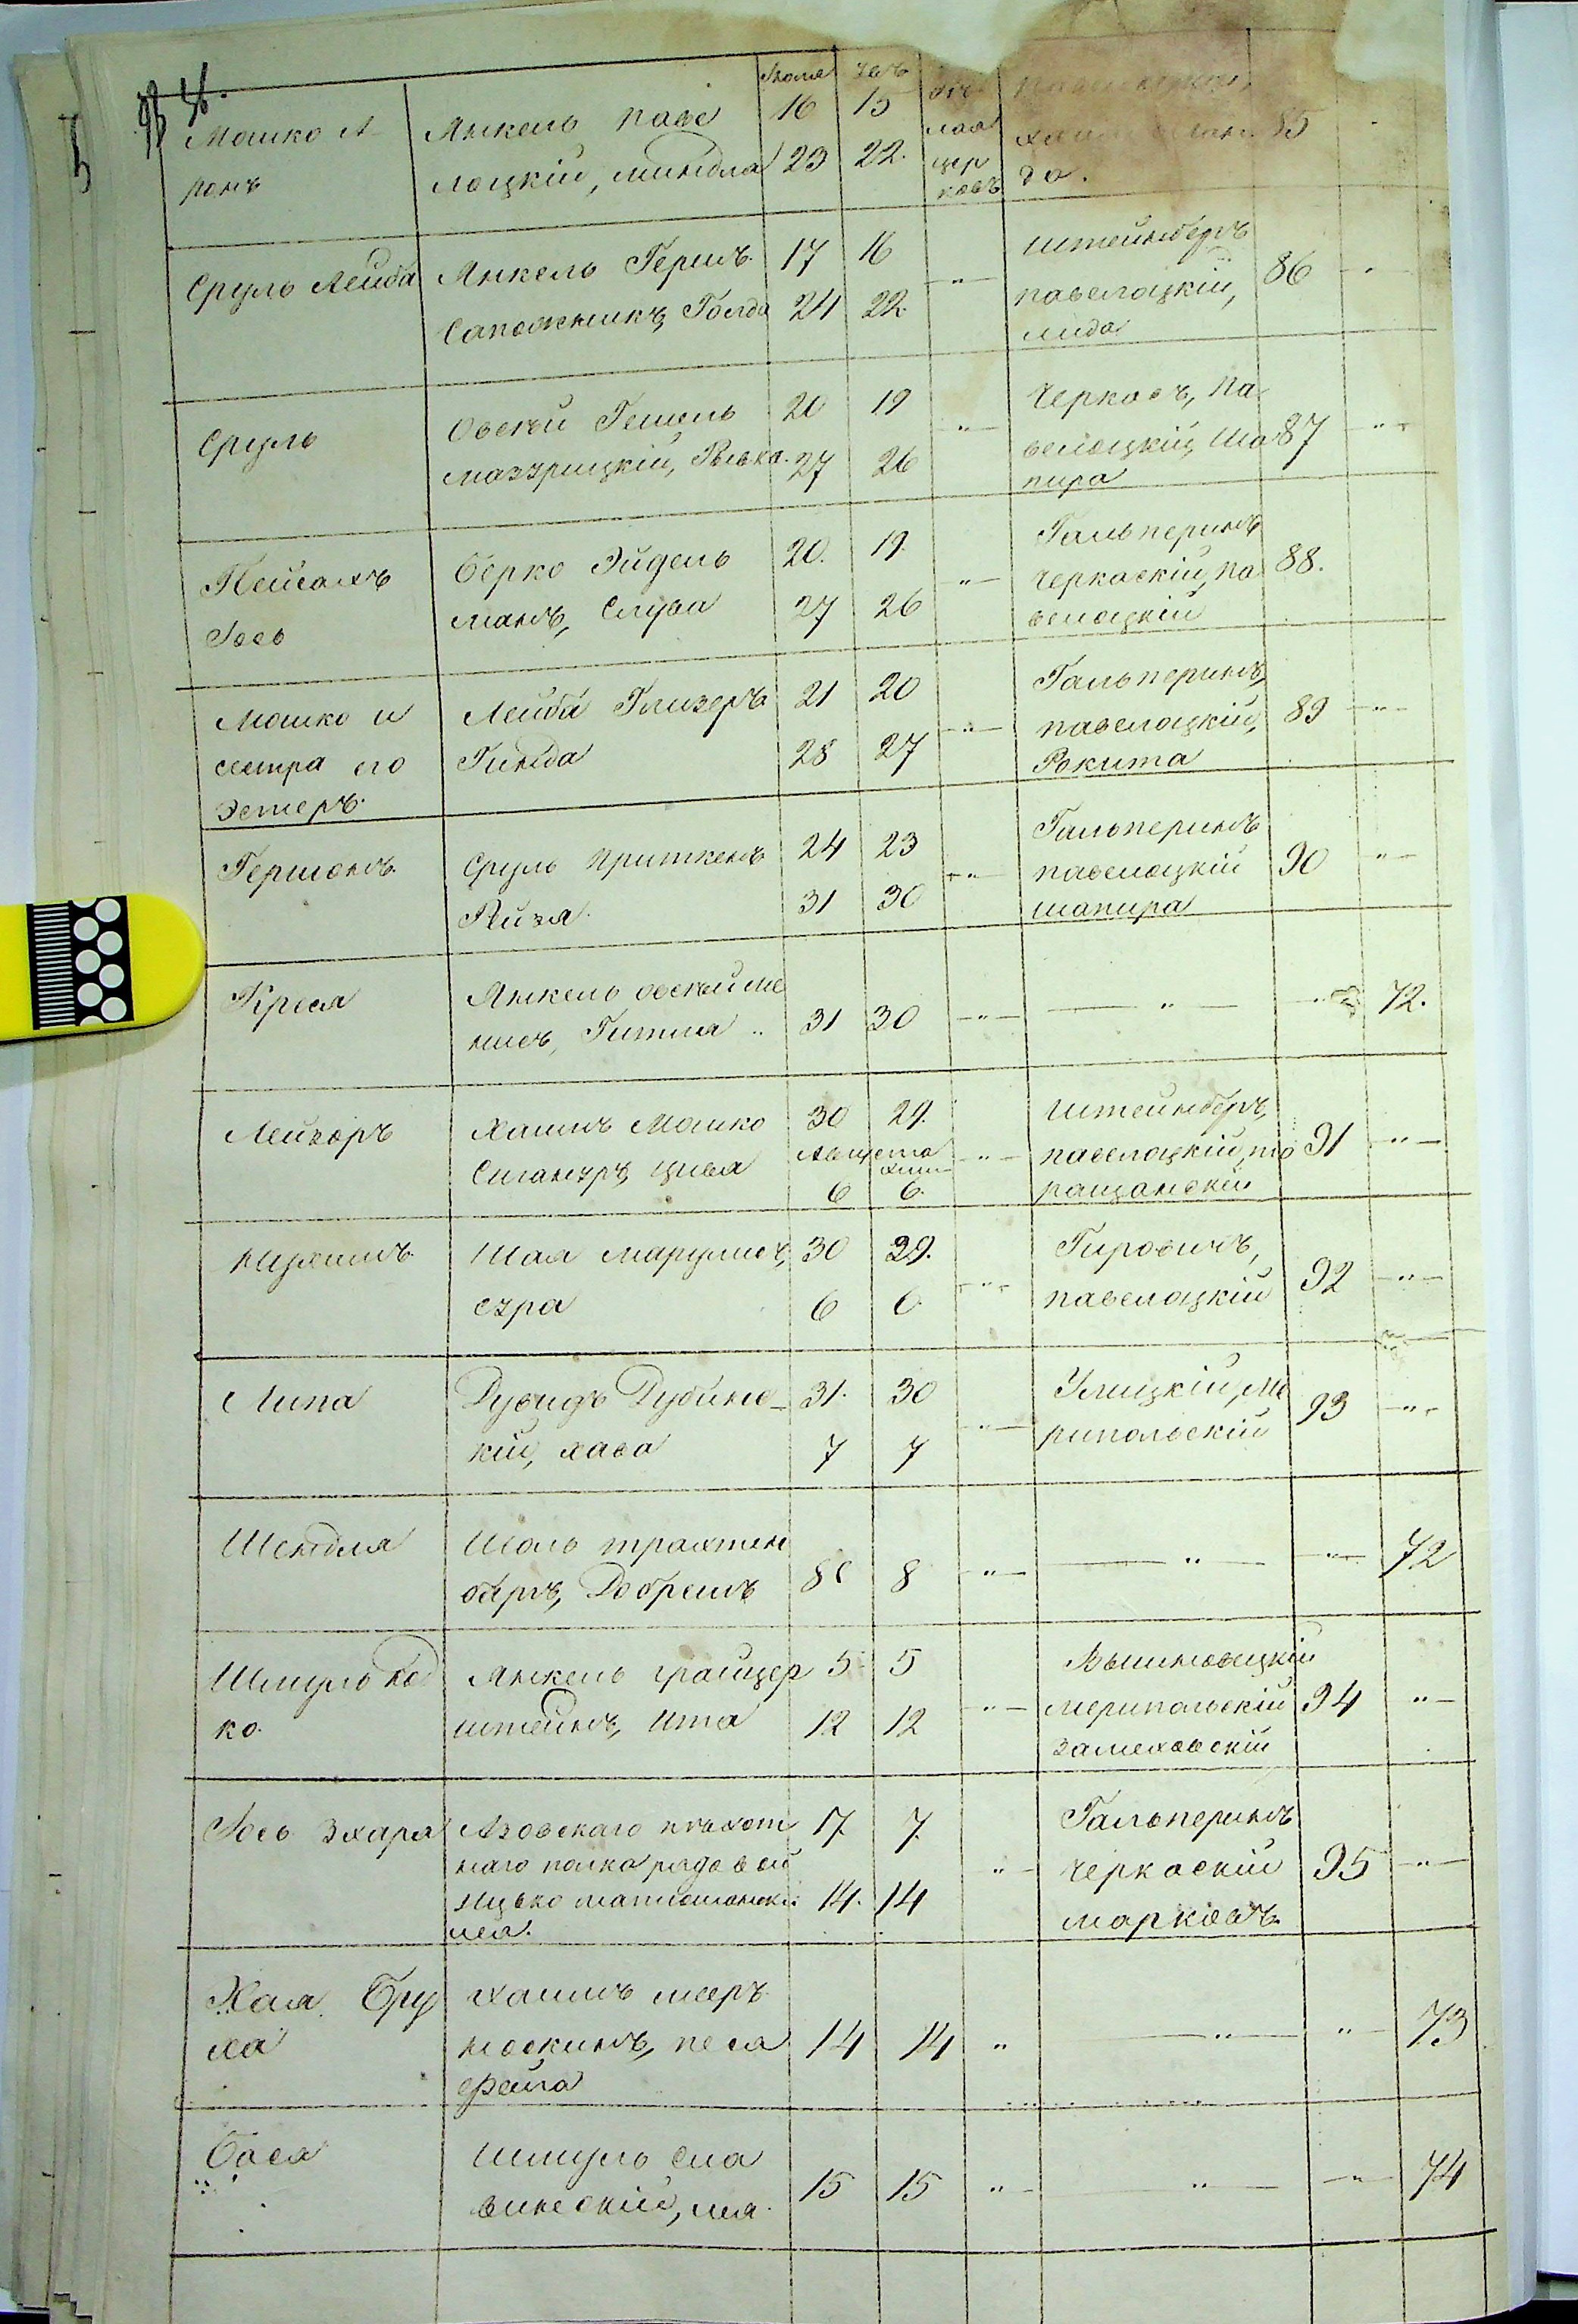 Мошко А
ронъ
Янкель паве
лоцкій, миндля
Іюля
16
23
15
22.
цер
ковъ
да.
85
Сруль Лейба
Янкель Гершъ
Сапожникъ, Голда
17 16
24 22.
Штейнбергъ
павелоцкій,
лида
86
Сруль
Овсѣй Гешель
мазурицкій, Ривка.
20 19
27 26
Черкасъ, Па
велоцкій, Ша
пира
87
Пейсахъ
Іось
Берко Эйдель
манъ, Слува
20. 19.
27 26
Гальперинъ
черкаскій, па
велоцкій
88.
Мошко и
сестра его
Эстеръ.
Лейба Глизеръ
Гинда
21 20
28 27
Гальперинъ,
павелоцкій,
Рокита
89
Гершонъ.
Сруль Приткенъ
Рейзя.
24 23
31 30
Гальперинъ
павелоцкій
шапира
90
Крейя
Янкель овсѣй ме
нисъ, Гитля
31 30
72.
Лейзоръ
Хаимъ Мошко
Сигануръ, Цивя
30 29.
Августа
6 6.
Штейнбергъ,
павелоцкій, то
ращанскій
91
Нухимъ
Шая маргулисъ,
сура
30 29.
6 6
Гировичъ,
павелоцкій
92
Липа
Дувидъ Дубинс
кій, хава
31. 30
7 7
Улицкій, ме
рипольскій
93
Шендля
Шоль трахтен
бергъ, Добрешъ
8 8
72
Шмуль
ко.
Янкель грайцер
штейнъ, Ита
5 5
12 12
Вышновецкій
мерипольскій
Замеховскій
94
Іось Зхара
Азовскаго пѣхот
наго полка рядовой
лея.
17 7
14. 14
Гальперинъ
черкаскій
маркосъ
95
Хая Бру
ха
хаимъ меръ
носкинъ, песя
фейга
14 14
73
Бася
Шмуль сла
винскій, лея
15 15
74